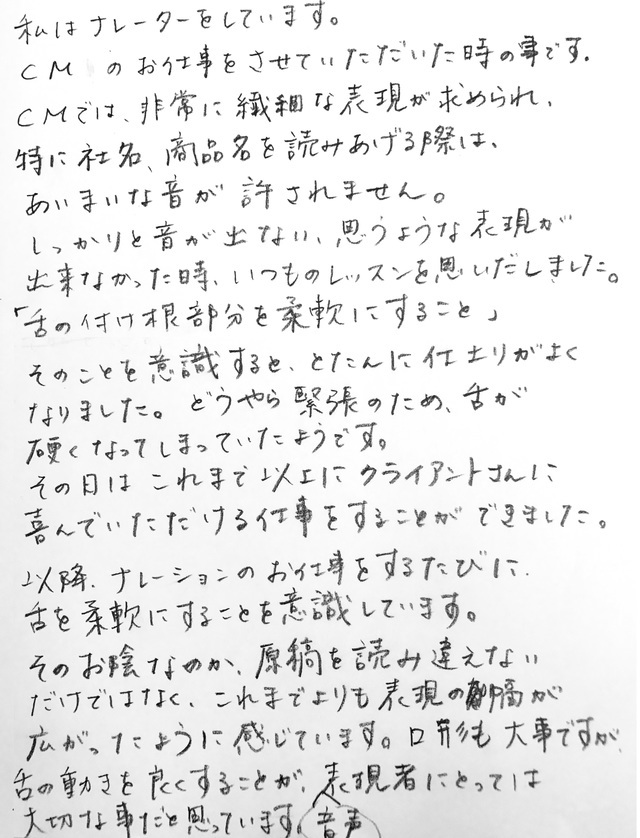 私はナレーターをしています。
CMのお仕事をさせていただいた時の事です。
CMでは、非常に繊細な表現が求められ、
特に社名、商品名を読みあげる際は、
あいまいな音が許されません。
しっかりと音が出ない、思うような表現が
出来なかった時、いつものレッスンを思いだしました。
「舌の付け根部分を柔軟にすること」
そのことを意識すると、とたんに仕上りがよく
なりました。どうやら緊張のため、舌が
硬くなってしまっていたようです。
その日はこれまで以上にクライアントさんに
喜んでいただける仕事をすることができました。
以降、ナレーションのお仕事をするたびに、
舌を柔軟にすることを意識しています。
そのお陰なのか、原稿を読み違えない
だけではなく、これまでよりも表現の幅が
広がったように感じています。口形も大事ですが、
舌の動きを良くすることが、音声表現者にとっては
大切な事だと思っています。